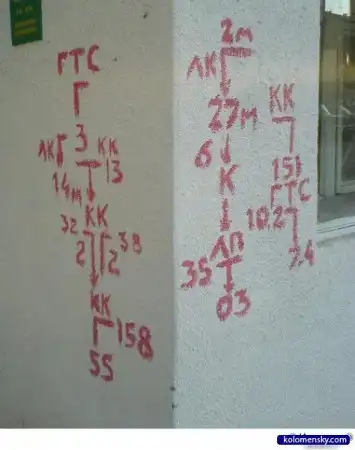 ГТС
3
ЛК
КК
13
14м
КК
32
38
2
2
КК
158
55
2м
ЛК
27м
6
К
ЛП
35
03
КК
151
ГТС
10.2
2.4
kolomensky.com